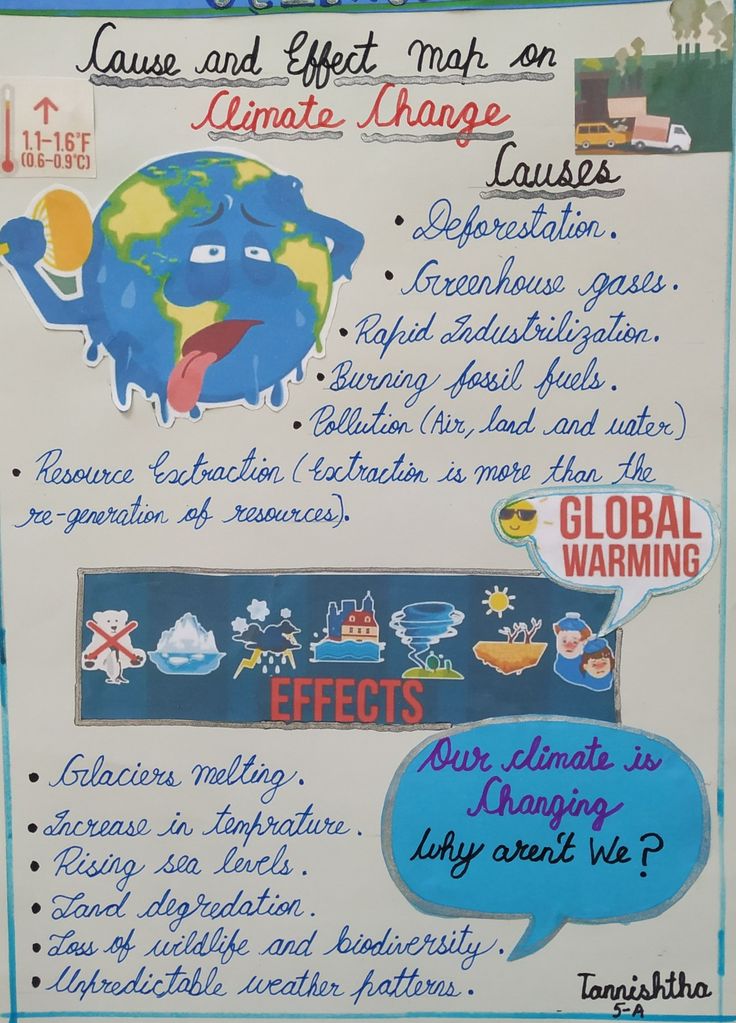 Cause and Effect map on
Climate Change
1.1-1.6°F
(0.6-0.9°C)
Causes
• Deforestation.
• Greenhouse gases.
• Rapid Industrilization.
• Burning fossil fuels.
• Pollution (Air, land and water)
• Resource Extraction (Extraction is more than the
re-generation of resources).
GLOBAL
WARMING
EFFECTS
• Glaciers melting.
• Increase in temprature.
• Rising sea levels.
• Land degredation.
• Loss of wildlife and biodiversity.
• Unpredictable weather patterns.
Our climate is
Changing
Why aren't We?
Tannishtha
5-A